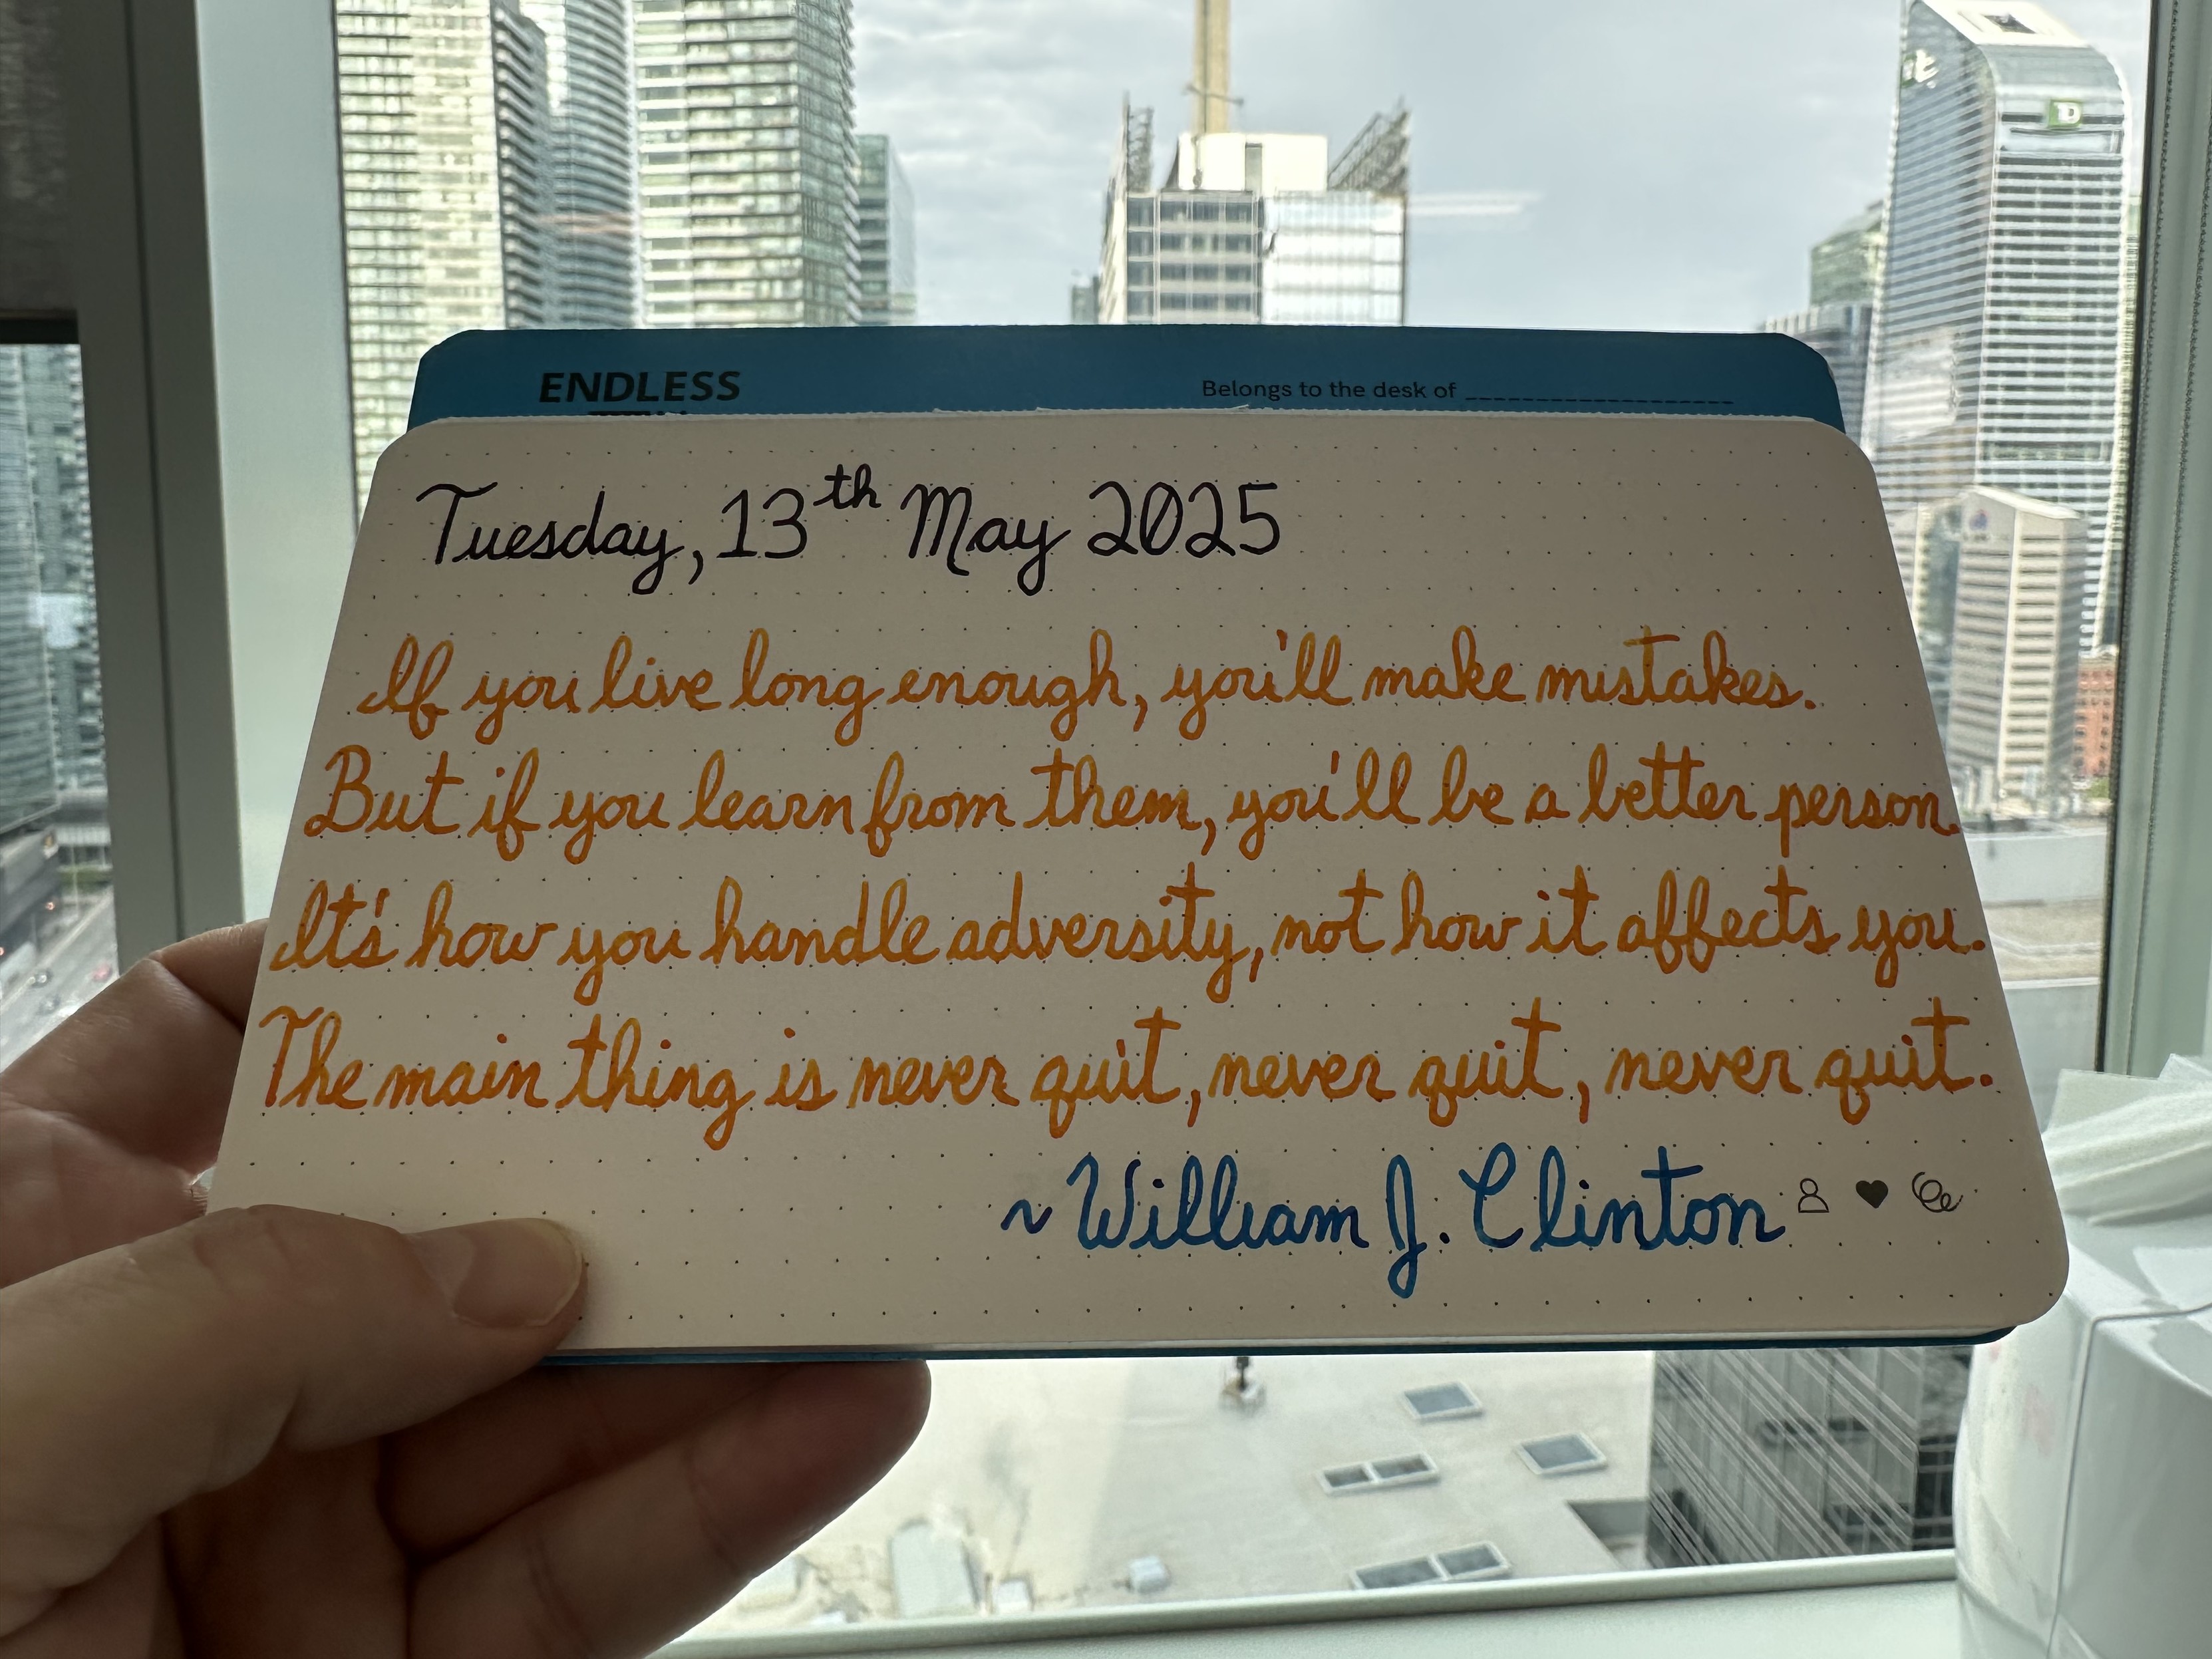 it
TD
ENDLESS
Belongs to the desk of
Tuesday, 13th May 2025
If you live long enough, you'll make mistakes.
But if you learn from them, you'll be a better person.
It's how you handle adversity, not how it affects you.
The main thing is never quit, never quit, never quit.
~William J. Clinton